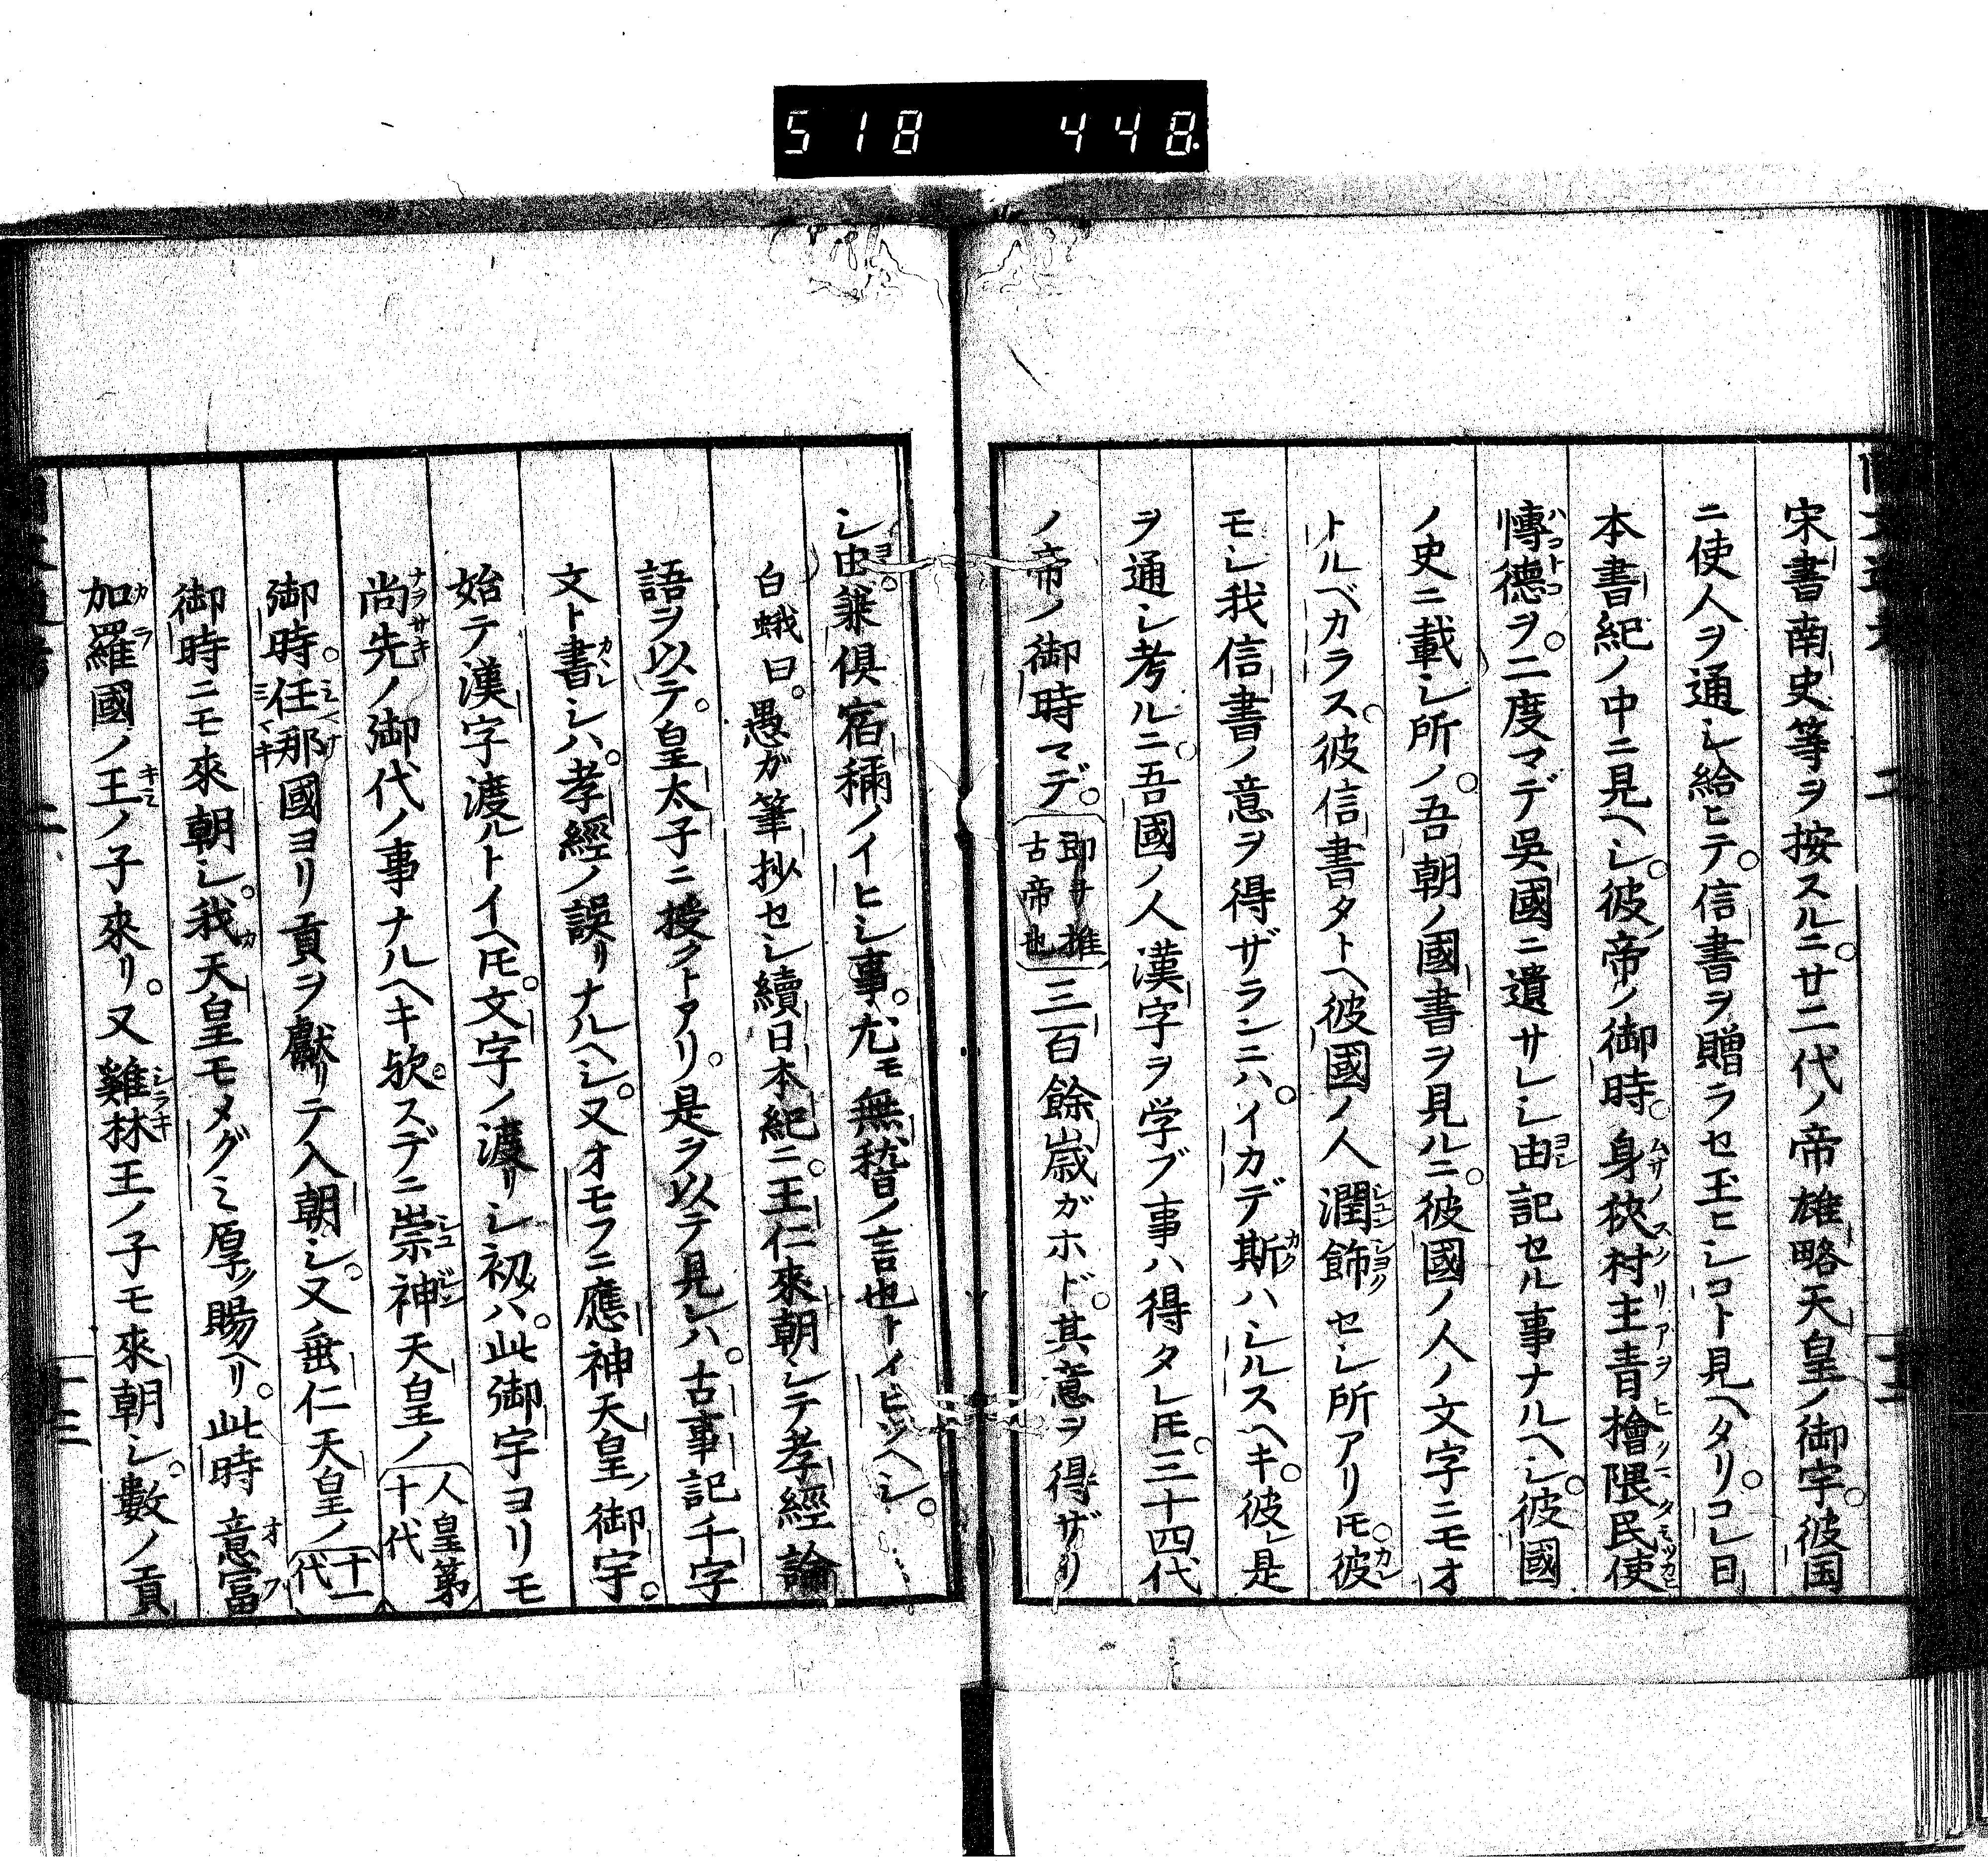 518 448.
宋書南史等ヲ按スルニ。廿二代ノ帝雄略天皇ノ御宇。彼国
ニ使人ヲ通シ給ヒテ。信書ヲ贈ラセ玉ヒシコト見ヘタリ。コレ日
本書紀ノ中ニ見ヘシ。彼帝ノ御時。身狹村主青檜隈民使
博德ヲ。二度マデ吳國ニ遣サレシ由記セル事ナルヘシ。彼國
ノ史ニ載シ所ノ。吾朝ノ國書ヲ見ルニ。彼國ノ人ノ文字ニモオ
トルベカラス。彼信書タトヘ彼國ノ人潤飾セシ所アリ𪜈。彼
モシ我信書ノ意ヲ得ザランニハ。イカデ斯ハシルスヘキ。彼レ是
ヲ通シ考ルニ。吾國ノ人漢字ヲ学ブ事ハ得タレ𪜈。三十四代
ノ帝ノ御時マデ。即推古帝也三百餘歲ガホド。其意ヲ得ザリ
シ由。兼倶宿禰ノイヒシ事。尤モ無稽ノ言也トイヒツヘシ。
白蛾曰。愚ガ筆抄セシ續日本紀ニ。王仁來朝シテ孝經論
語ヲ以テ。皇太子ニ授クトアリ。是ヲ以テ見レハ。古事記千字
文ト書シハ。孝經ノ誤リナルヘシ。又オモフニ應神天皇ノ御宇。
始テ漢字渡ルトイヘ𪜈。文字ノ渡リシ初メハ。此御宇ヨリモ
尚先ノ御代ノ事ナルヘキ歟。スデニ崇神天皇ノ人皇第十代
御時。任那國ヨリ貢ヲ獻リテ入朝シ。又垂仁天皇ノ十一代
御時ニモ來朝シ。我天皇モメグミ厚ク賜ヘリ。此時意富
加羅國ノ王ノ子來リ。又雞林王ノ子モ來朝シ。數ノ貢